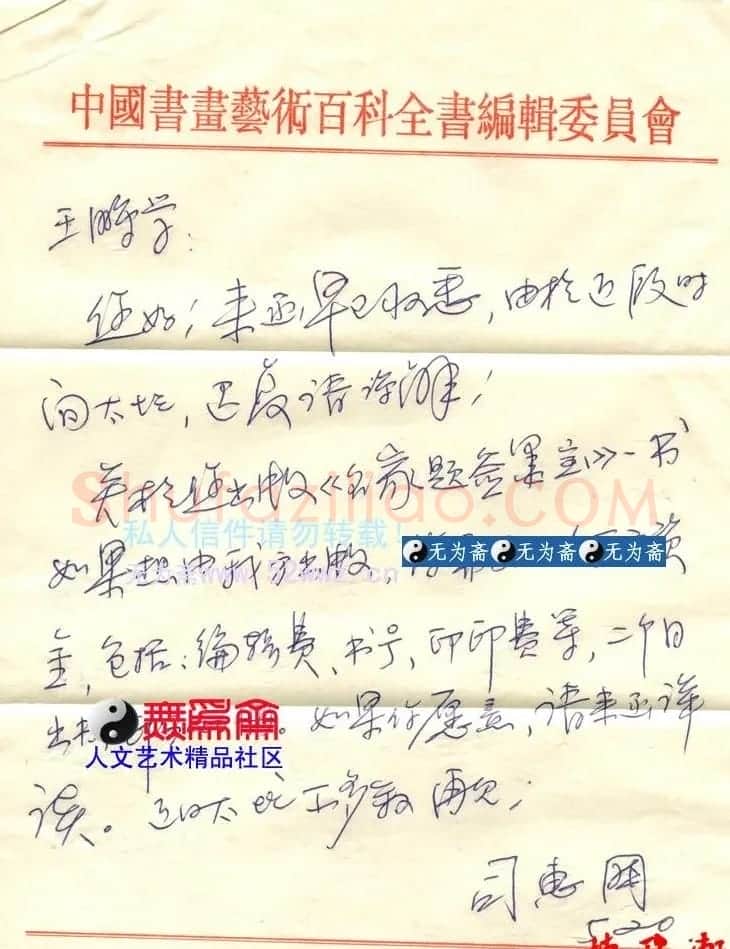 中國書畫藝術百科全書編輯委員會
王 学：
您好！来函早已收悉，由於近段时
间太忙，迟复请谅解！
关於您出版《名家题签 》一书
Shufaziliao.com
私人信件请勿转载！
如果想由我 出版，
无为斋 无为斋 无为斋
金，包括：编辑费、书号、印印费等，二个月
出
無為齋
人文艺术精品社区
如果你愿意，请来函详
谈。近日太忙 再见！
司惠国
5.20